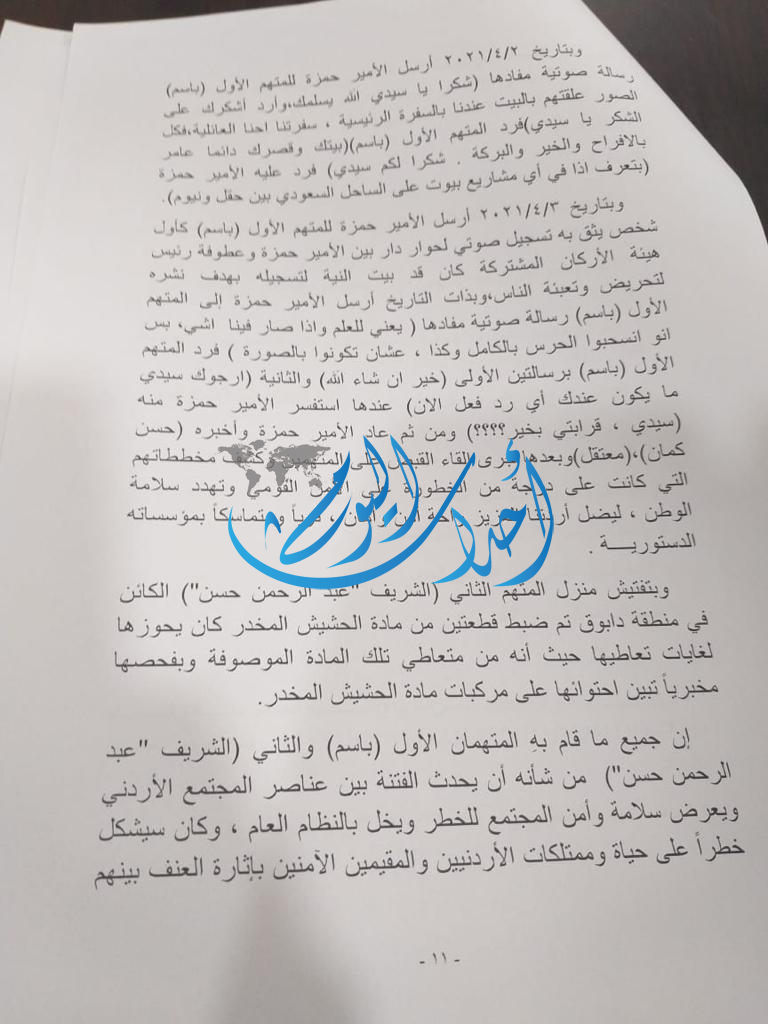 وبتاريخ ٢٠٢١/٤/٢ أرسل الأمير حمزة للمتهم الأول (باسم)
رسالة صوتية مفادها (شكرا يا سيدي الله يسلمك،وأرد أشكرك على
الصور علقتهم بالبيت عندنا بالسفرة الرئيسية ، سفرتنا احنا العائلية،فكل
الشكر يا سيدي)فرد المتهم الأول (باسم)(بيتك وقصرك دائما عامر
بالافراح والخير والبركة . شكرا لكم سيدي) فرد عليه الأمير حمزة
(بتعرف اذا في أي مشاريع بيوت على الساحل السعودي بين حقل ونيوم).
وبتاريخ ٢٠٢١/٤/٣ أرسل الأمير حمزة للمتهم الأول (باسم) كأول
شخص يثق به تسجيل صوتي لحوار دار بين الأمير حمزة وعطوفة رئيس
هيئة الأركان المشتركة كان قد بيت النية لتسجيله بهدف نشره
لتحريض وتعبئة الناس،وبذات التاريخ أرسل الأمير حمزة إلى المتهم
الأول (باسم) رسالة صوتية مفادها ( يعني للعلم واذا صار فينا اشي، بس
انو انسحبوا الحرس بالكامل وكذا ، عشان تكونوا بالصورة ) فرد المتهم
الأول (باسم) برسالتين الأولى (خير ان شاء الله) والثانية (ارجوك سيدي
ما يكون عندك أي رد فعل الان) عندها استفسر الأمير حمزة منه
(سيدي ، قرابتي بخير؟؟؟؟) ومن ثم عاد الأمير حمزة وأخبره (حسن
كمان)،(معتقل)وبعدها جرى إلقاء القبض على المتهمين وكشف مخططاتهم
التي كانت على درجة من الخطورة على الأمن القومي وتهدد سلامة
الوطن ، ليضل أردننا العزيز واحة أمن وأمان ، قوياً ومتماسكاً بمؤسساته
الدستوريـــة .
وبتفتيش منزل المتهم الثاني (الشريف "عبد الرحمن حسن") الكائن
في منطقة دابوق تم ضبط قطعتين من مادة الحشيش المخدر كان يحوزها
لغايات تعاطيها حيث أنه من متعاطي تلك المادة الموصوفة وبفحصها
مخبرياً تبين احتوائها على مركبات مادة الحشيش المخدر.
إن جميع ما قام بهِ المتهمان الأول (باسم) والثاني (الشريف "عبد
الرحمن حسن") من شأنه أن يحدث الفتنة بين عناصر المجتمع الأردني
ويعرض سلامة وأمن المجتمع للخطر ويخل بالنظام العام ، وكان سيشكل
خطراً على حياة وممتلكات الأردنيين والمقيمين الآمنين بإثارة العنف بينهم
- ١١ -
أحداث اليوم